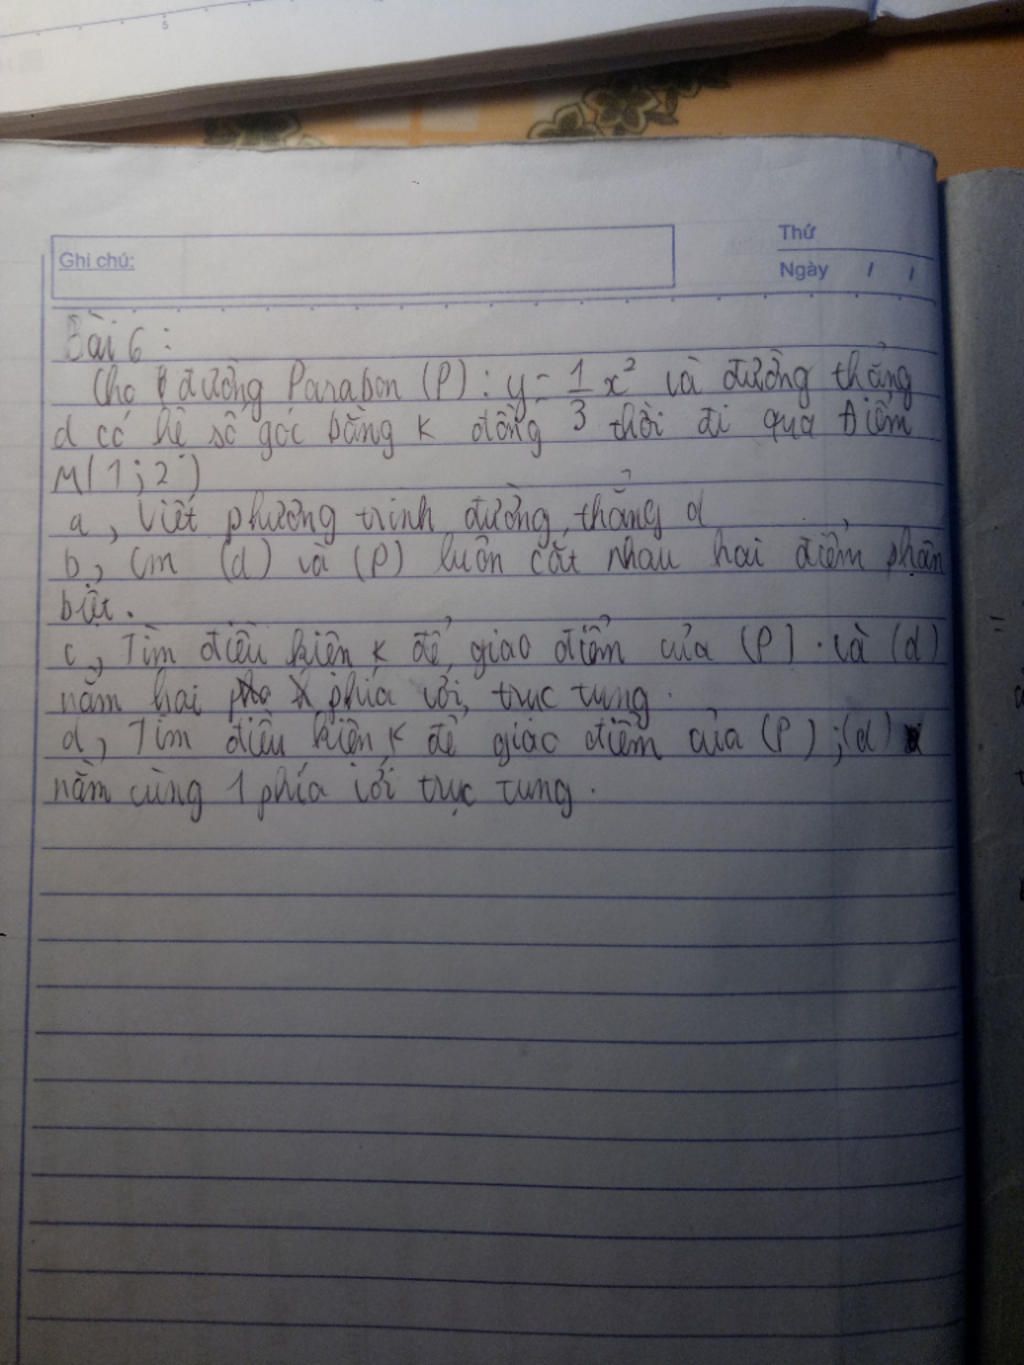 5
Thứ
Ghi chú:
Ngày / /
Bài 6 :
Cho đường Parabon (P) : y = 1/3 x² và đường thẳng
d có hệ số góc bằng k đồng thời đi qua điểm
M(1;2)
a, Viết phương trình đường thẳng d
b, Cm (d) và (P) luôn cắt nhau hai điểm phân
biệt.
c, Tìm điều kiện k để giao điểm của (P) và (d)
nằm hai phía với trục tung.
d, Tìm điều kiện k để giao điểm của (P) ; (d)
nằm cùng 1 phía với trục tung.